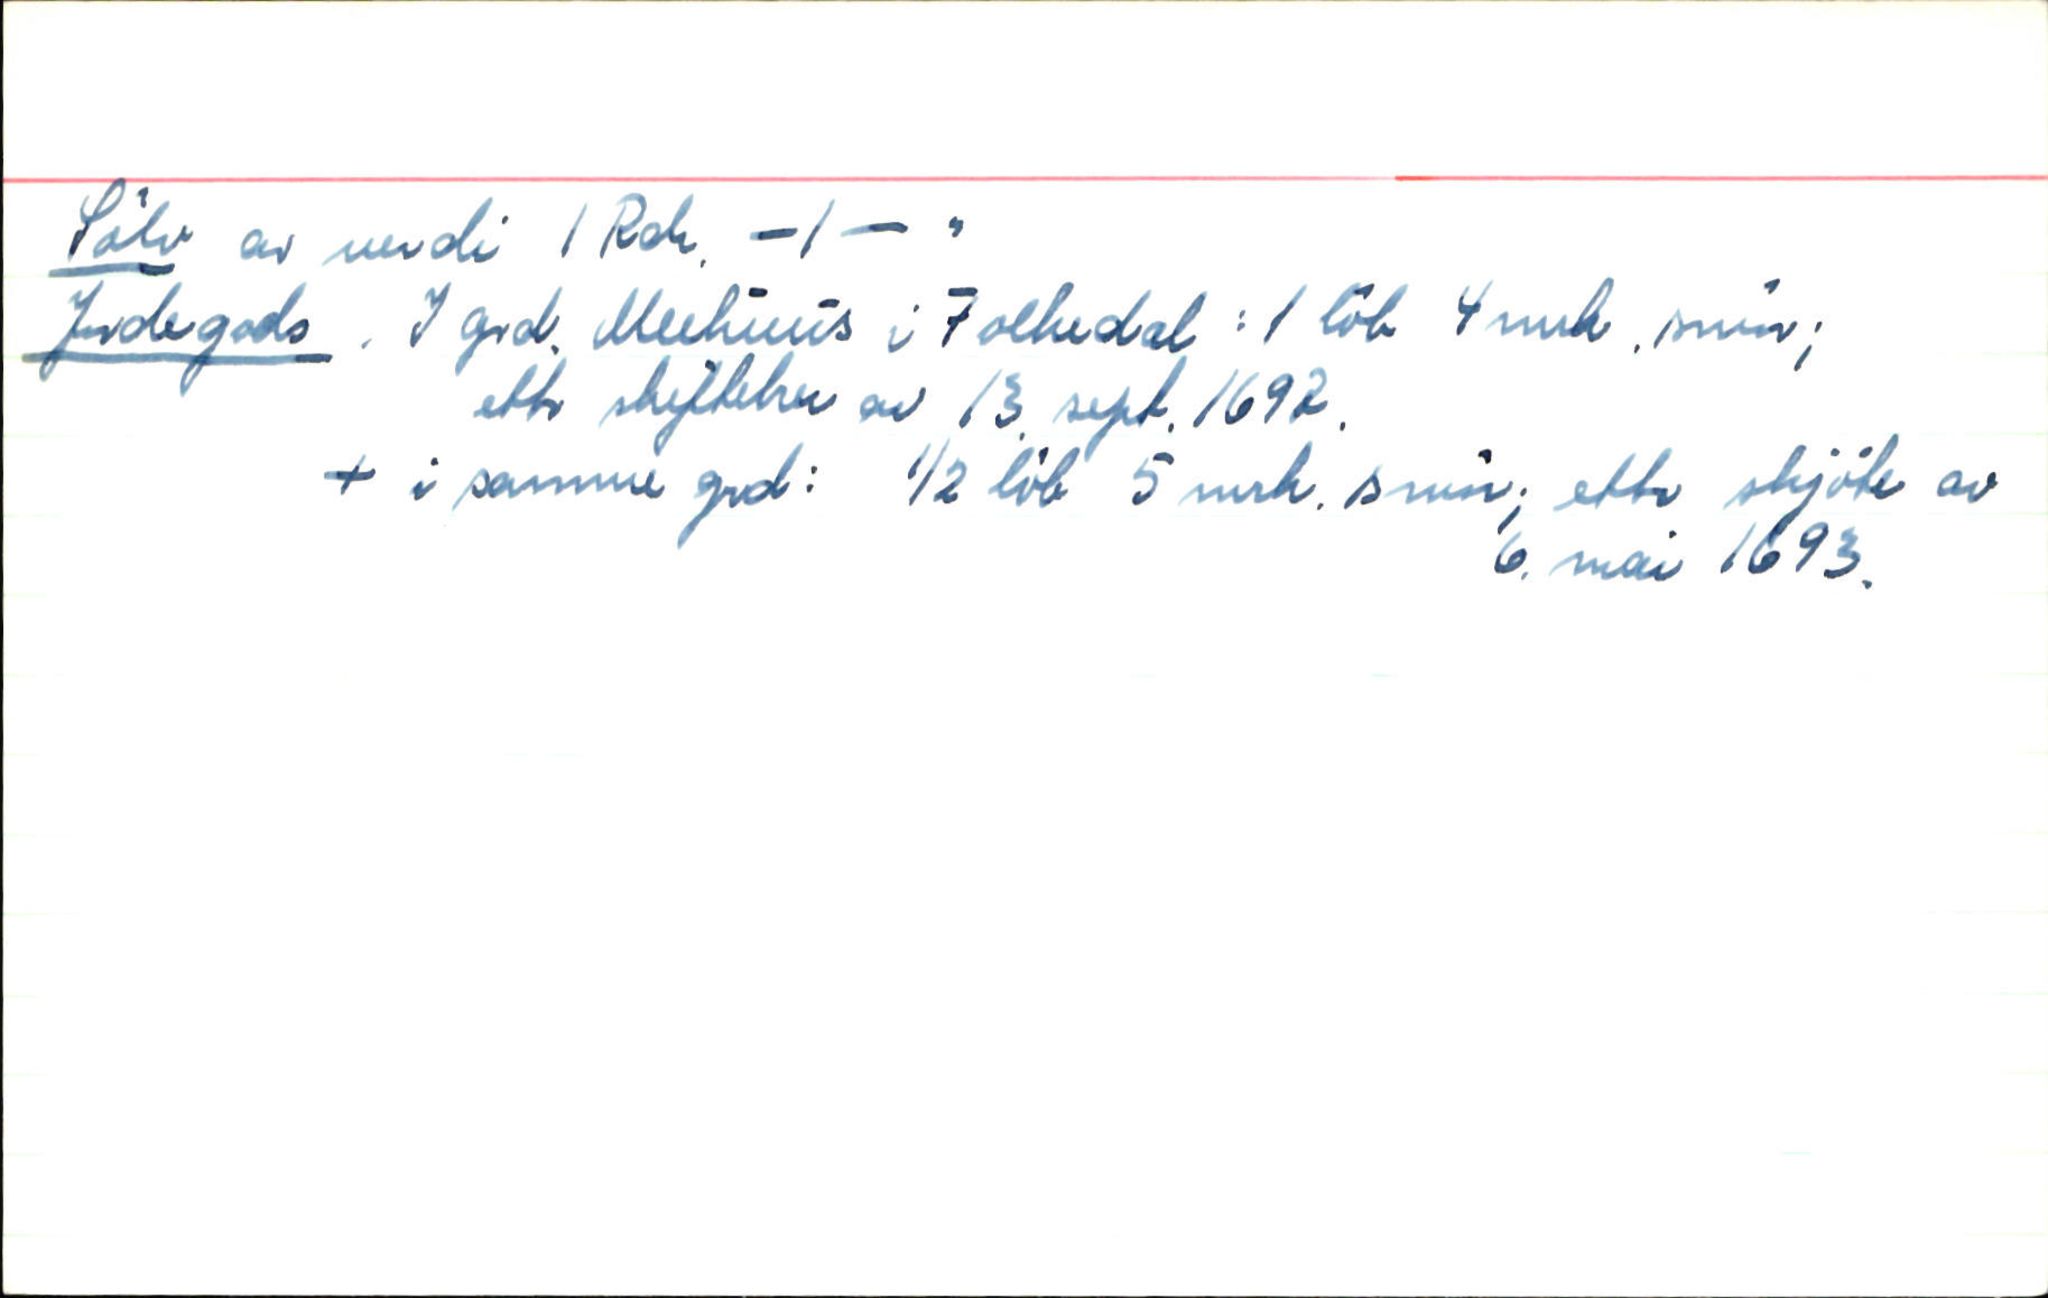 Sölv av verdi 1 Rdr. — 1 — "
Jordegods. I grd. Mehuus i Folkedal : 1 löb 4 mrk. smör;
ettr skiftebrev av 13. sept. 1692.
+ i samme grd: 1/2 löb 5 mrk. smör; ettr skjöte av
6. mai 1693.